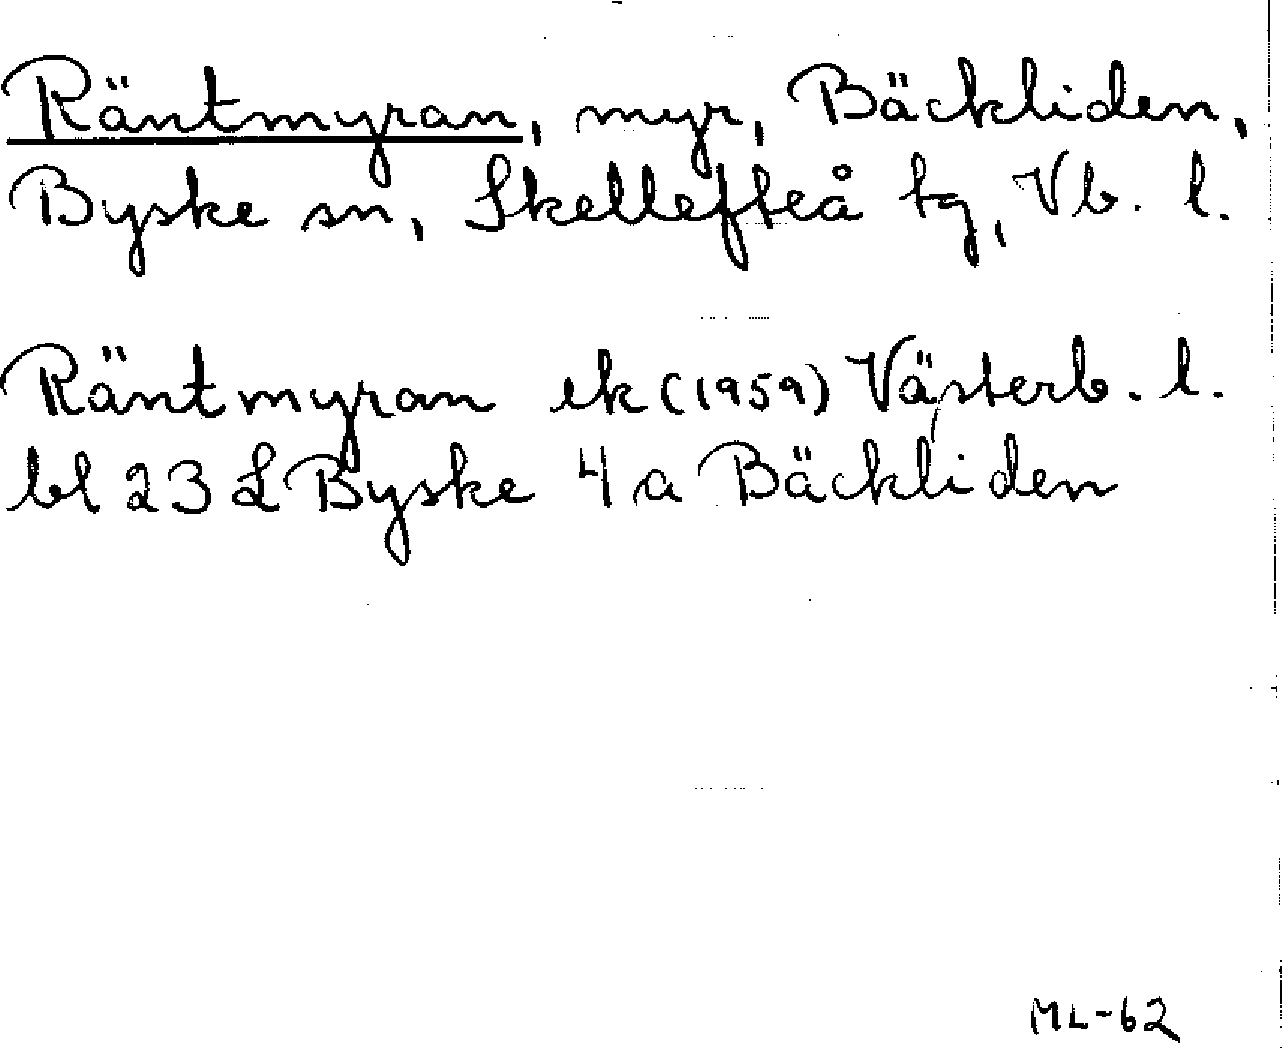 Räntmyran, myr, Bäckliden,
Byske sn, Skellefteå tg, Vb. l.
Räntmyran ek (1959) Västerb. l.
bl 23 L Byske 4 a Bäckliden
ML-62